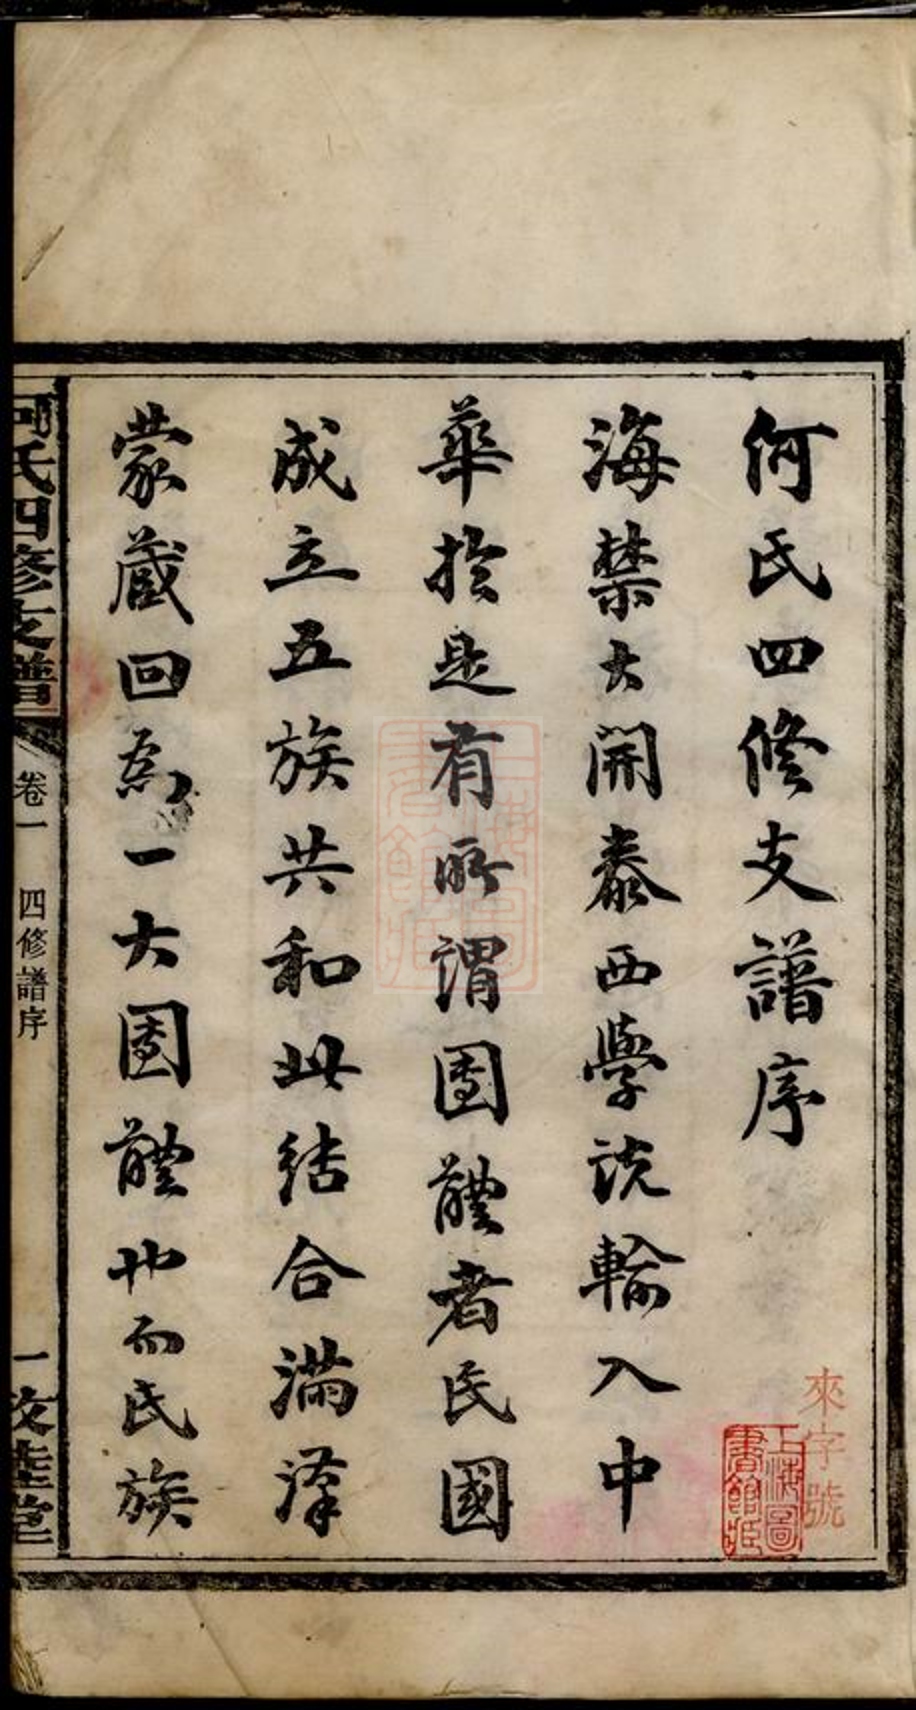 何氏四修支譜序
海禁大開泰西學說輸入中
華於是有所謂團體者民國
成立五族共和此結合滿漢
蒙藏回為一大團體也而民族
何氏四修支譜
卷一
四修譜序
一
敦睦堂
來字號
上海圖
書館藏
上海圖
書館藏